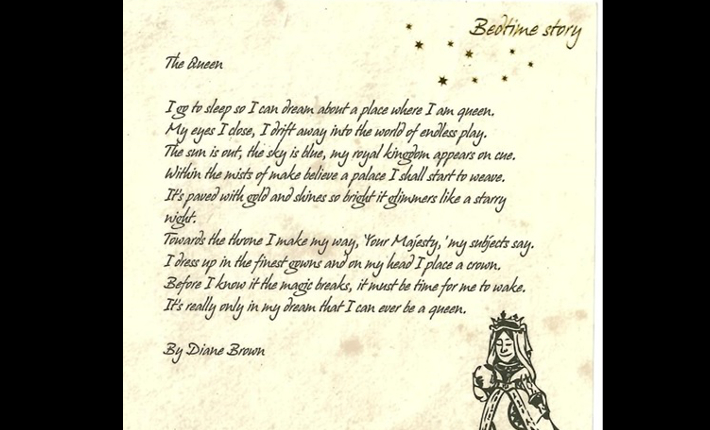 Bedtime story
The Queen
I go to sleep so I can dream about a place where I am queen.
My eyes I close, I drift away into the world of endless play.
The sun is out, the sky is blue, my royal kingdom appears on cue.
Within the mists of make believe a palace I shall start to weave.
It's paved with gold and shines so bright it glimmers like a starry
night.
Towards the throne I make my way, 'Your Majesty,' my subjects say.
I dress up in the finest gowns and on my head I place a crown.
Before I know it the magic breaks, it must be time for me to wake.
It's really only in my dream that I can ever be a queen.
By Diane Brown